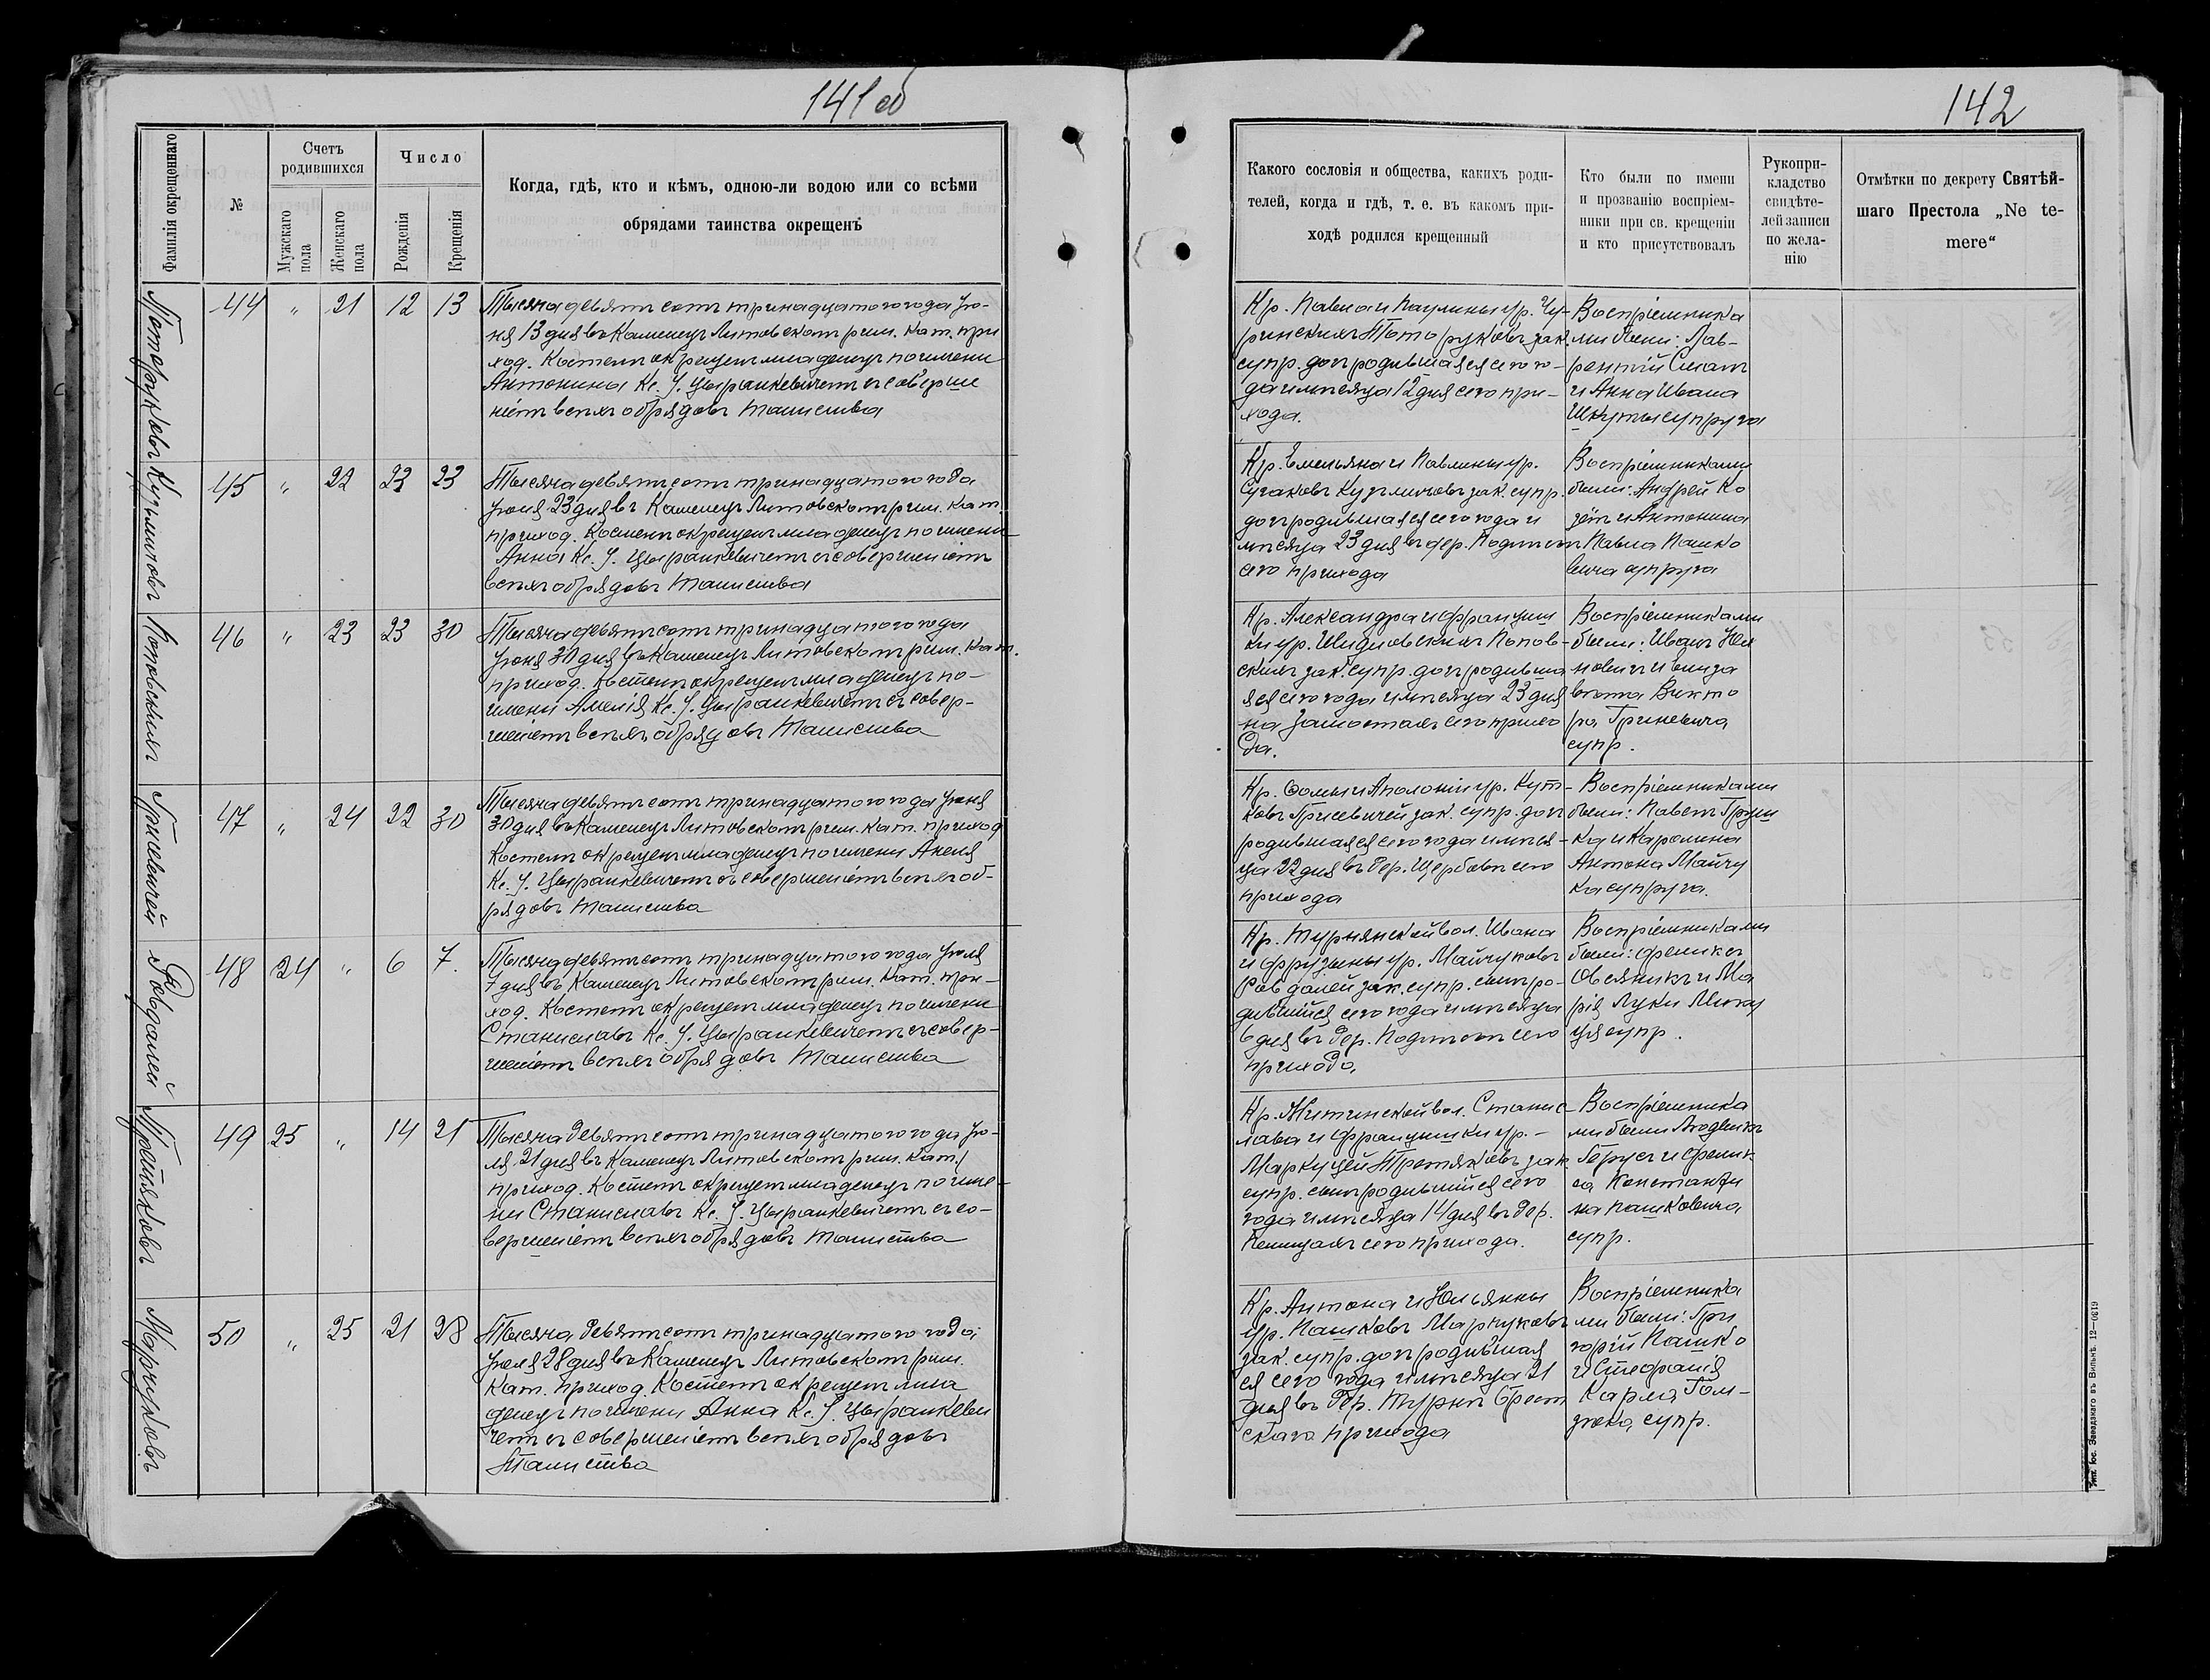 141 об
Фамилія окрещеннаго
№
Счетъ родившихся
Мужскаго пола
Женскаго пола
Число
Рожденія
Крещенія
Когда, гдѣ, кто и кѣмъ, одною-ли водою или со всѣми
обрядами таинства окрещенъ
44 " 21 12 13
Тысяча девятьсотъ тринадцатого года Ию-
ня 13 дня въ Каменецъ Литовскомъ рим. кат. при
ход. Костелѣ окрещенъ младенецъ по имени
Антонина Кс. I. Цыранкевичемъ съ соверше
ніемъ всѣхъ обрядовъ Таинства
Кузьмичовъ
45 " 22 23 23
Тысяча девятьсотъ тринадцатого года
Июня 23 дня въ Каменецъ Литовскомъ рим. кат.
приход. Костелѣ окрещенъ младенецъ по имени
Анна Кс. I. Цыранкевичемъ съ совершеніемъ
всѣхъ обрядовъ Таинства
Поповскихъ
46 " 23 23 30
Тысяча девятьсотъ тринадцатого года
Июня 30 дня въ Каменецъ Литовскомъ рим. кат.
приход. Костелѣ окрещенъ младенецъ по-
имени Амелія Кс. I. Цыранкевичемъ съ совер-
шеніемъ всѣхъ обрядовъ Таинства
Грисевичей
47 " 24 22 30
Тысяча девятьсотъ тринадцатого года Июня
30 дня въ Каменецъ Литовскомъ рим. кат. приход
Костелѣ окрещенъ младенецъ по имени Анеля
Кс. I. Цыранкевичемъ съ совершеніемъ всѣхъ об-
рядовъ Таинства
Ровдалей
48 24 " 6 7.
Тысяча девятьсотъ тринадцатого года Июля
7 дня въ Каменецъ Литовскомъ рим. кат. при-
ход. Костелѣ окрещенъ младенецъ по имени
Станиславъ Кс. I. Цыранкевичемъ съ совер-
шеніемъ всѣхъ обрядовъ Таинства
Третяковъ
49 25 " 14 21
Тысяча девятьсотъ тринадцатого года Ию-
ля 21 дня въ Каменецъ Литовскомъ рим. кат.
приход. Костелѣ окрещенъ младенецъ по име-
ни Станиславъ Кс. I. Цыранкевичемъ съ со-
вершеніемъ всѣхъ обрядовъ Таинства
Марчуковъ
50 " 25 21 28
Тысяча девятьсотъ тринадцатого года
Июля 28 дня въ Каменецъ Литовскомъ рим.
кат. приход. Костелѣ окрещенъ мла
денецъ по имени Анна Кс. I. Цыранкеви
чемъ съ совершеніемъ всѣхъ обрядовъ
Таинства
142
Какого сословія и общества, какихъ роди-
телей, когда и гдѣ, т. е. въ какомъ при-
ходѣ родился крещенный
Кто были по имени
и прозванію воспріем-
ники при св. крещеніи
и кто присутствовалъ
Рукопри-
кладство
свидѣте-
лей записи
по жела-
нію
Отмѣтки по декрету Святѣй-
шаго Престола „Ne te-
mere“
Кр. Павла и Паулины ур. Чу-
ринскихъ зак.
супр. дочь родившаяся сего го-
да и мѣсяца 12 дня сего при-
хода.
Воспріемника
ми были: Лав-
рентій
и Анна Ивана
Шкуты супруга
Кр. Емельяна и Павлины ур.
Сугаковъ Кузьмичовъ зак. супр.
дочь родившаяся сего года и
мѣсяца 23 дня въ дер.
сего прихода
Воспріемниками
были: Андрей Ко
зёлъ и Антонина
Павла Пашко
вича супруга
Кр. Александра и Францишки
ур. Шидловскихъ Попов-
скихъ зак. супр. дочь родивша
яся сего года и мѣсяца 23 дня
на Замостахъ сего прихо
да.
Воспріемниками
были: Иванъ Юх
новичъ и Елиза
вета Викто
ра Гриневича
супр.
Кр. Ѳомы и Аполоніи ур. Кут-
ковъ Грисевичей зак. супр. дочь
родившаяся сего года и мѣся-
ца 22 дня въ дер. Щербово сего
прихода
Воспріемниками
были: Павелъ Груш
ка и Каролина
Антона Майчу
ка супруга.
Кр. Турнянской вол. Ивана
и Фрузыны ур. Майчуковъ
Ровдалей зак. супр. сынъ ро-
дившійся сего года и мѣсяца
6 дня въ дер. сего
прихода.
Воспріемниками
были: Феликсъ
Овсяникъ и Ма
рія Луки Миха
супр.
Кр. Житинской вол. Станис-
лава и Францишки ур. -
Третяковъ зак.
супр. сынъ родившійся сего
года и мѣсяца 14 дня въ дер.
сего прихода.
Воспріемника
ми были Людвикъ
Герусъ и Фелик
са Константи
на Пашковича
супр.
Кр. Антона и Юльянны
ур. Пашковъ Марчуковъ
зак. супр. дочь родившая
ся сего года и мѣсяца 21
дня въ дер. Турны Брест
скаго прихода
Воспріемника
ми были: Гри
горій Пашко
и Стефанія
Карла Гом-
зюка супр.
Тип. Іос. Завадзкаго въ Вильнѣ. 12—0619